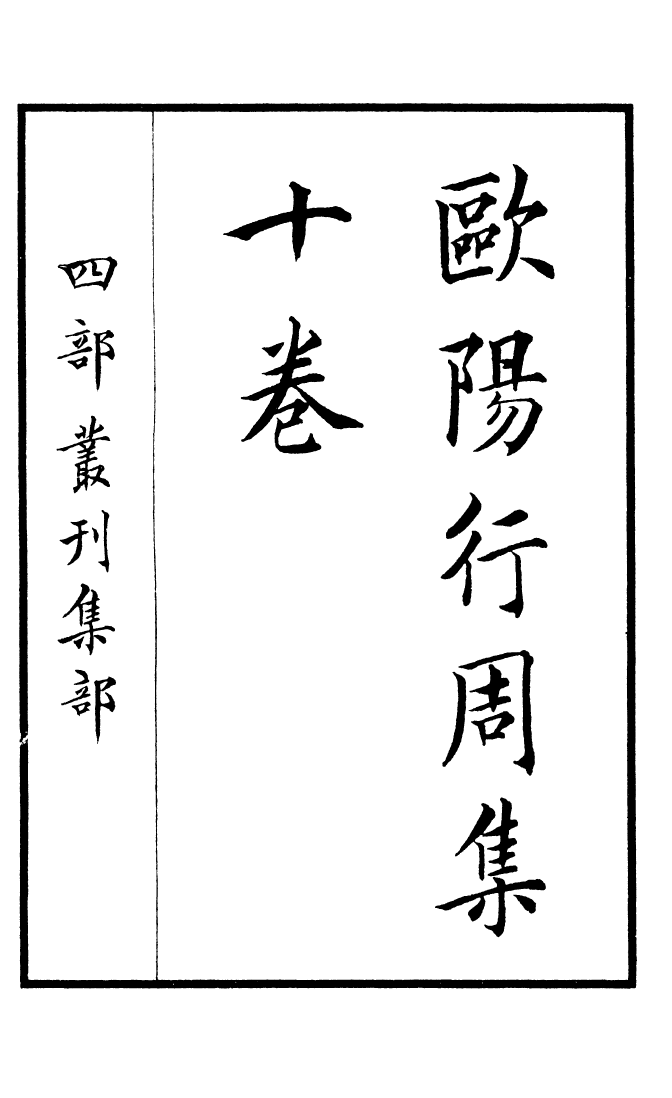 歐陽行周集
十卷
四部叢刊集部